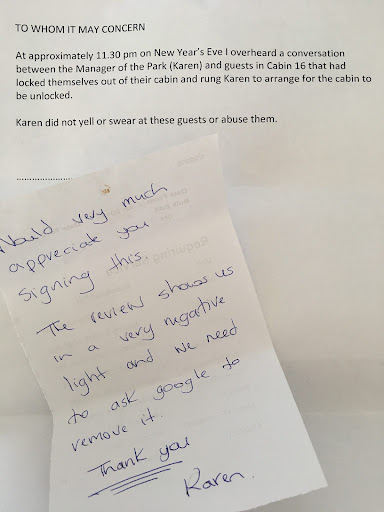 TO WHOM IT MAY CONCERN
At approximately 11.30 pm on New Year's Eve I overheard a conversation
between the Manager of the Park (Karen) and guests in Cabin 16 that had
locked themselves out of their cabin and rung Karen to arrange for the cabin to
be unlocked.
Karen did not yell or swear at these guests or abuse them.
.......................
Would very much
appreciate you
signing this.
The review shows us
in a very negative
light and we need
to ask google to
remove it.
Thank you
Karen.